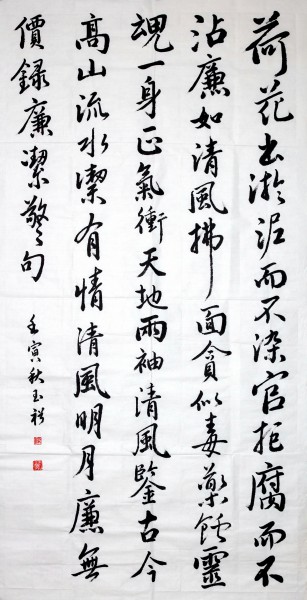 荷花出淤泥而不染官拒腐而不
沾廉如清風拂面貪似毒藥蝕靈
魂一身正氣衝天地兩袖清風鑒古今
高山流水潔有情清風明月廉無
價録廉潔警句
壬寅秋玉彬